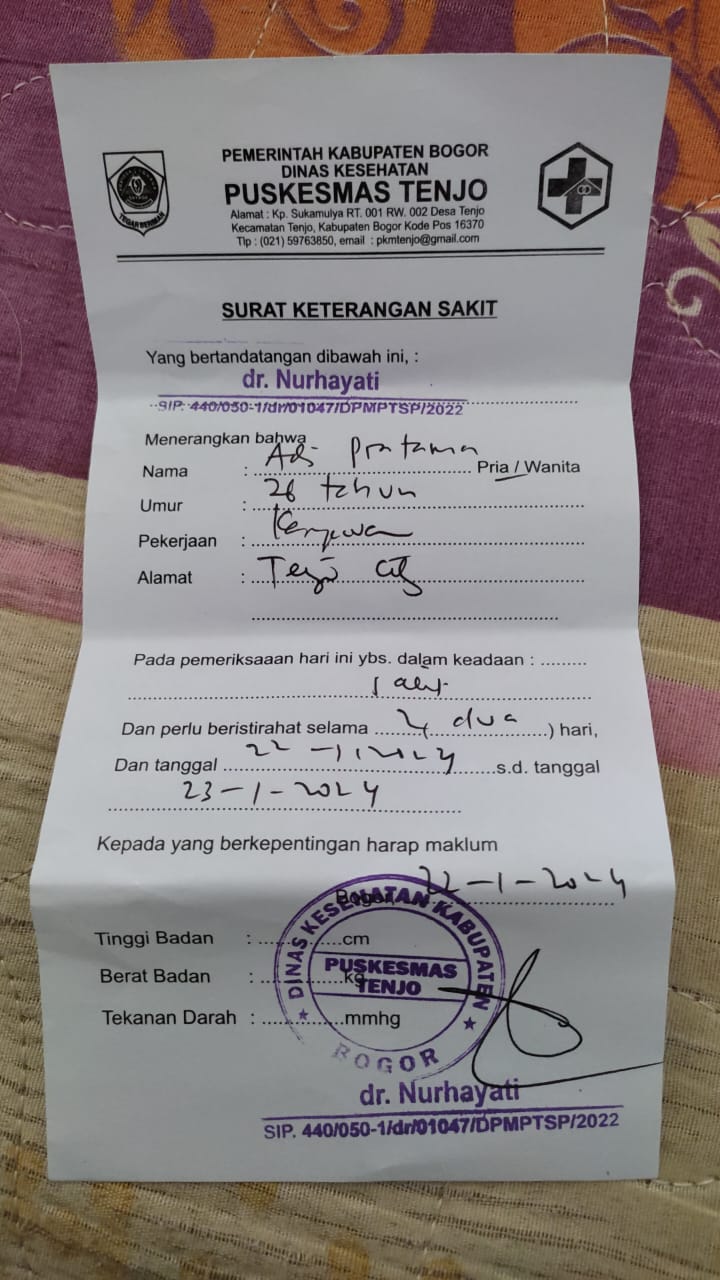 PEMERINTAH KABUPATEN BOGOR
DINAS KESEHATAN
PUSKESMAS TENJO
Alamat : Kp. Sukamulya RT. 001 RW. 002 Desa Tenjo
Kecamatan Tenjo, Kabupaten Bogor Kode Pos 16370
Tlp : (021) 59763850, email : pkmtenjo@gmail.com
TEGAR BERIMAN
SURAT KETERANGAN SAKIT
Yang bertandatangan dibawah ini, :
dr. Nurhayati
SIP. 440/050-1/dr/01047/DPMPTSP/2022
Menerangkan bahwa
Nama : Adi Pratama Pria / Wanita
Umur : 26 tahun
Pekerjaan : Karyawan
Alamat : Tenjo City
Pada pemeriksaaan hari ini ybs. dalam keadaan : .........
sakit
Dan perlu beristirahat selama 2 ( dua ) hari,
Dan tanggal 22-1-2024 s.d. tanggal
23-1-2024
Kepada yang berkepentingan harap maklum
Bogor, 22-1-2024
Tinggi Badan : ...............cm
Berat Badan : ...............kg
Tekanan Darah : ...............mmhg
DINAS KESEHATAN KABUPATEN
PUSKESMAS
TENJO
BOGOR
dr. Nurhayati
SIP. 440/050-1/dr/01047/DPMPTSP/2022